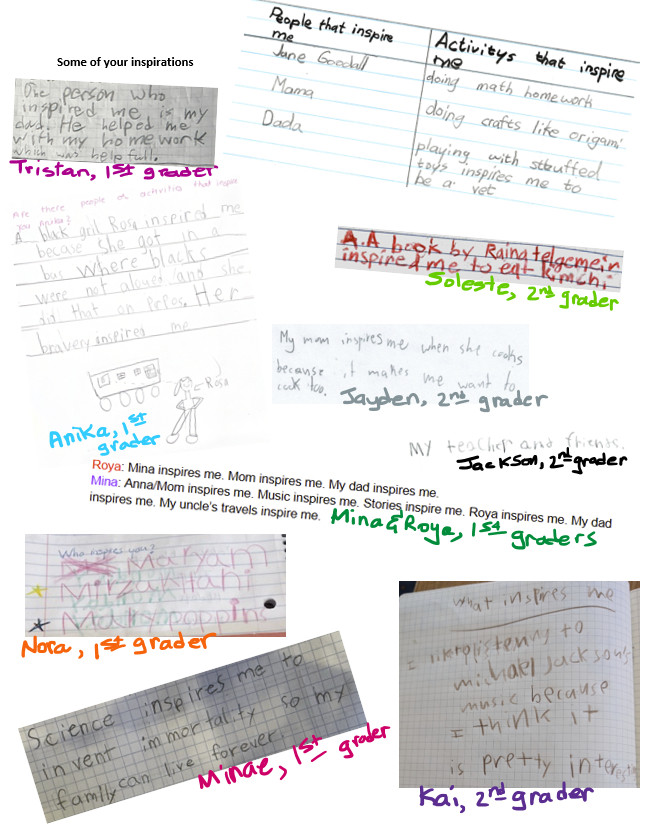 Some of your inspirations
One person who
inspired me is my
dad. He helped me
with my home work
which was help full.
Tristan, 1st grader
People that inspire
me
Jane Goodall
Mama
Dada
Activitys that inspire
me
doing math homework
doing crafts like origami
playing with steuffed
toys inspires me to
be a vet
Are there people or activitis that inspire
you Anika?
A blak girl Rosa inspired me
becase She got in a
bus where blacks
were not aloued and she
did that on
Her
bravery inspired me
Rosa
Anika, 1st
grader
A.A book by Raina telgemein
inspired me to eat kimchi
Soleste, 2nd grader
My mom inspires me when she cooks
because it makes me want to
cook too.
Jayden, 2nd grader
MY teacher and friends.
Jackson, 2nd grader
Roya: Mina inspires me. Mom inspires me. My dad inspires me.
Mina: Anna/Mom inspires me. Music inspires me. Stories inspire me. Roya inspires me. My dad
inspires me. My uncle's travels inspire me.
Mina & Roya, 1st graders
Who inspires you?
Maryam
Mirzakhani
Marypoppins
Nora, 1st grader
Science inspires me to
invent immortality so my
family can live forever
Minae, 1st grader
what inspires me
I like listening to
michael Jackson's
music because
I think it
is pretty interesting
Kai, 2nd grader